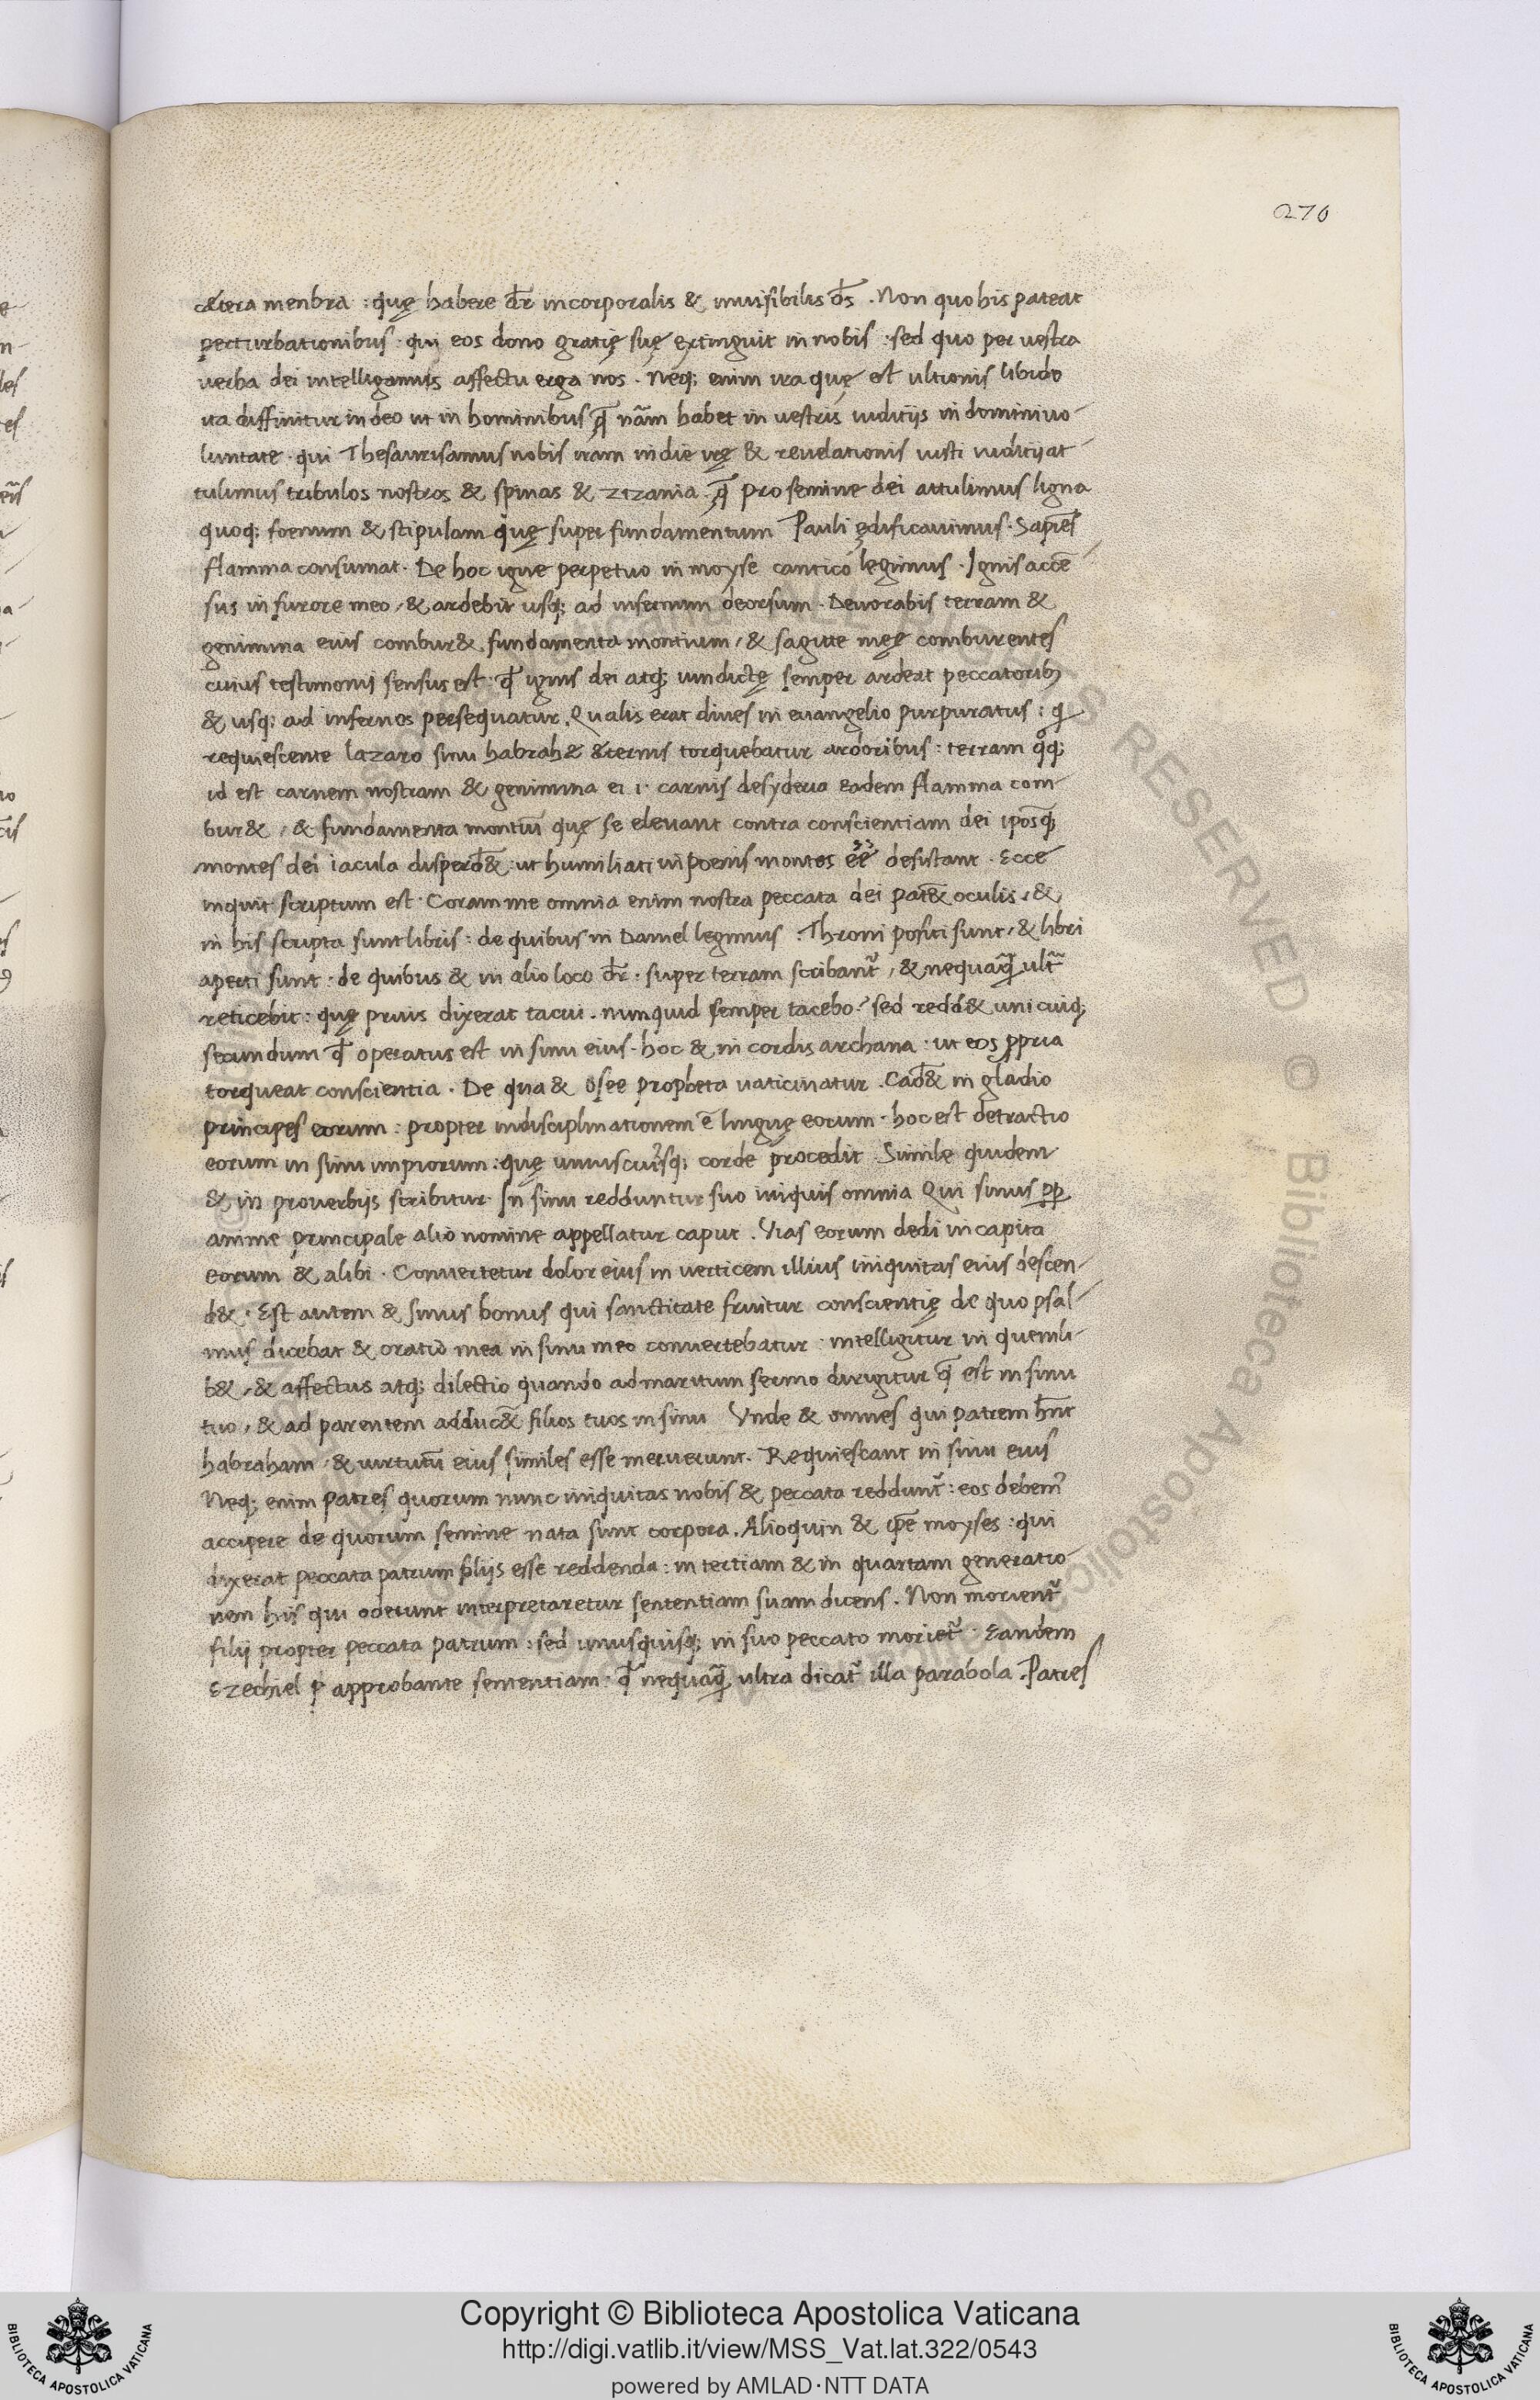 270
c&tera menbra : quę habere dr̄ incorporalis & inuisibilis ds̄ . Non quo his pateat
perturbationibus · qui eos dono gratię suę extinguit in nobis : sed quo per uestra
uerba dei intelligamus affectu erga nos . Neq; enim ira quę est ultionis libido
ita diffinitur in deo ut in hominibus q̄ nām habet in uestris iuditijs in domini uo-
luntate · qui Thesaurisamus nobis iram in die irę & reuelationis iusti iuditij at-
tulimus tribulos nostros & spinas & zizania q̄ pro semine dei attulimus ligna
quoq; foenum & stipulam quę super fundamentum Pauli ędificauimus · Sapiēs
flamma consumat · De hoc igne perpetuo in moyse cantico legimus · Ignis accē-
sus in furore meo , & ardebit usq; ad infernum deorsum · Deuorabis terram &
genimina eius combur& fundamenta montium , & sagitte męę comburentes
cuius testimonij sensus est : q̄ ignis dei atq; uindictę semper ardeat peccatorib;
& usq; ad infernos persequatur . Qualis erat diues in euangelio purpuratus : q
requiescente lazaro sinu habrahę &ternis torquebatur ardoribus : terram qͦq;
id est carnem nostram & genimina ei i· carnis desyderia eadem flamma com-
bur& , & fundamenta montiū quę se eleuant contra conscientiam dei iposq̄;
montes dei iacula disperd& : ut humiliati in poenis montes eē desistant · Ecce
inquit scriptum est · Coram me omnia enim nostra peccata dei pat& oculis , &
in his scripta sunt libris : de quibus in Daniel legimus . Throni positi sunt , & libri
aperti sunt · de quibus & in alio loco dr̄ · super terram scribant᷑ , & nequaq̄ ult᷑
reticebit : quę prius dixerat tacui . nunquid semper tacebo ? sed redd& unicuiq;
secundum q̄ operatus est in sinu eius · hoc & in cordis archana : ut eos ꝓpria
torqueat conscientia . De qua & Osee propheta uaticinatur . Cad& in gladio
principes eorum : propter indisciplinationem ē linguę eorum · hoc est detractio
eorum in sinu impiorum : quę uniuscuisq; corde procedit Simile quidem
& in prouerbijs scribitur In sinu redduntur suo iniquis omnia Qui sinus ꝓp
anime principale alio nomine appellatur caput . Vias eorum dedi in capita
eorum & alibi · Conuertetur dolor eius in uerticem illius iniquitas eius descen-
d& · Est autem & sinus bonus qui sanctitate fruitur conscientię de quo psal-
mus dicebat & oratio mea in sinu meo conuertebatur · intelligitur in quemli-
b& , & affectus atq; dilectio quando ad maritum sermo dirigitur q̄ est in sinu
tuo , & ad parentem adduc& filios tuos in sinu Vnde & omnes qui patrem hn̄t
habraham , & uirtutū eius similes esse meruerunt . Requiescant in sinu eius
Neq; enim patres quorum nunc iniquitas nobis & peccata reddunt᷑ : eos debem᷒
accipere de quorum semine nata sunt corpora . Alioquin & ip̄e moyses : qui
dixerat peccata patrum filijs esse reddenda : in tertiam & in quartam generatio-
nem his qui oderunt interpretaretur sententiam suam dicens . Non morient᷑
filij propter peccata patrum : sed unusquisq; in suo peccato moriet᷑ · Eandem
Ezechiel ꝑ approbante sententiam : q̄ nequaq̄ ultra dicat᷑ illa parabola . Patres
Copyright © Biblioteca Apostolica Vaticana
http://digi.vatlib.it/view/MSS_Vat.lat.322/0543
powered by AMLAD·NTT DATA